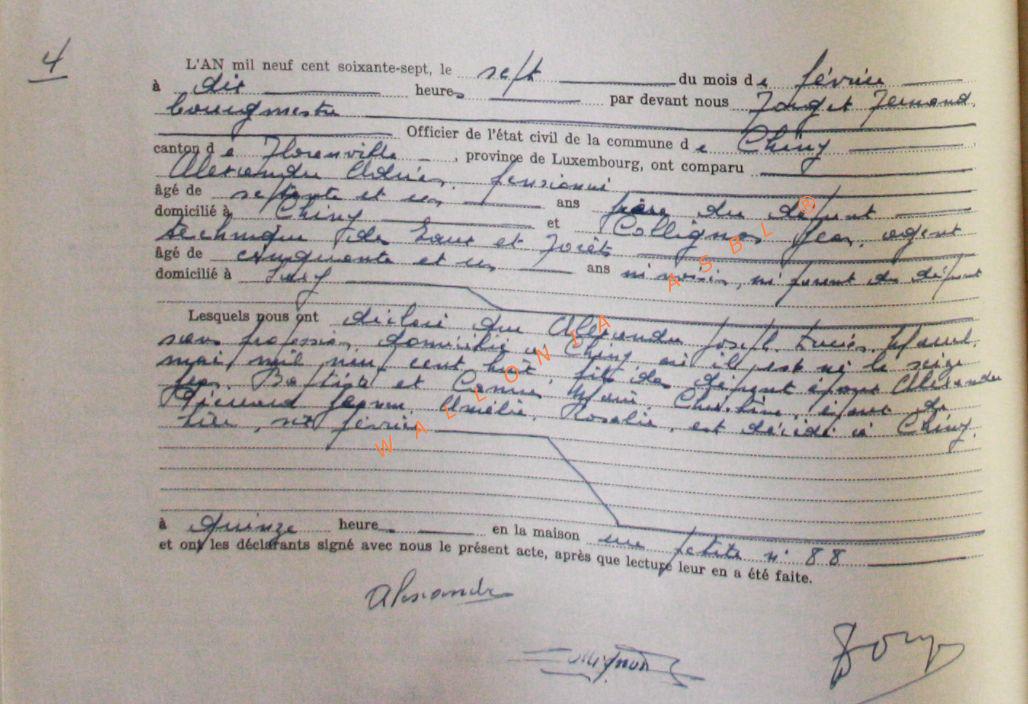 4
L'AN mil neuf cent soixante-sept, le sept du mois de février
à dix heures par devant nous Forget Fernand,
bourgmestre
Officier de l'état civil de la commune de Chiny
canton de Florenville, province de Luxembourg, ont comparu
Alexandre Adrien, pensionné
âgé de septante et un ans frère du défunt
domicilié à Chiny et Collignon Jean, agent
technique des Eaux et Forêts
âgé de cinquante et un ans ni voisin, ni parent du défunt
domicilié à
Lesquels nous ont déclaré que Alexandre Joseph, Lucien,
sans profession, domicilié à Chiny où il est né le seize
mai mil neuf cent huit, fils des défunts époux Alexandre
Baptiste et Marie époux de
Amélie, Rosalie, est décédé à Chiny,
hier, six février
à quinze heures en la maison rue petite n° 88
et ont les déclarants signé avec nous le présent acte, après que lecture leur en a été faite.
Alexandre
Collignon
WALLONIA ASBL ®